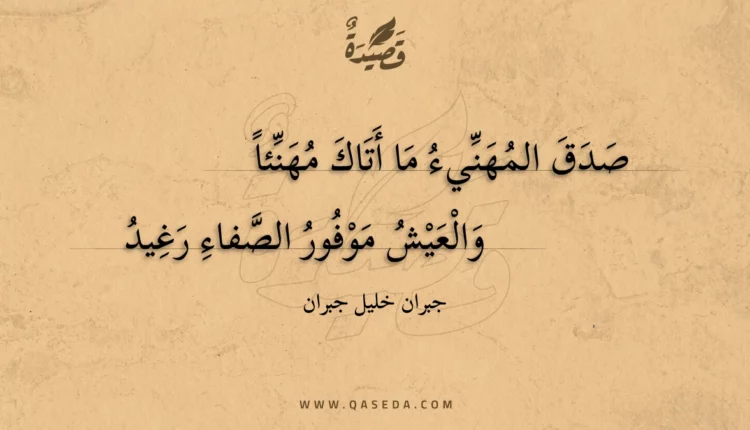 قَصِيْدَةٌ
صَدَقَ المُهَنِّيءُ مَا أَتَاكَ مُهَنِّئاً
وَالْعَيْشُ مَوْفُورُ الصَّفاءِ رَغِيدُ
جبران خليل جبران
WWW.QASEDA.COM